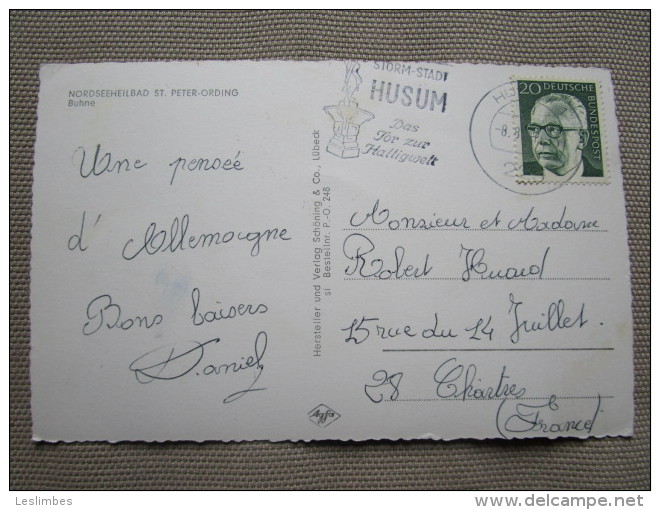 NORDSEEHEILBAD ST. PETER-ORDING
Buhne
Une pensée
d'Allemagne
Bons baisers
Daniel
Hersteller und Verlag Schöning & Co., Lübeck
si Bestellnr. P.-O. 248
Agfa
STORM-STADT
HUSUM
Das
Tor zur
Halligwelt
-8.8
20 DEUTSCHE
BUNDESPOST
Monsieur et Madame
Robert Huard
15 rue du 14 Juillet.
28 Chartres
(France)
Leslimbes
delcampe.net